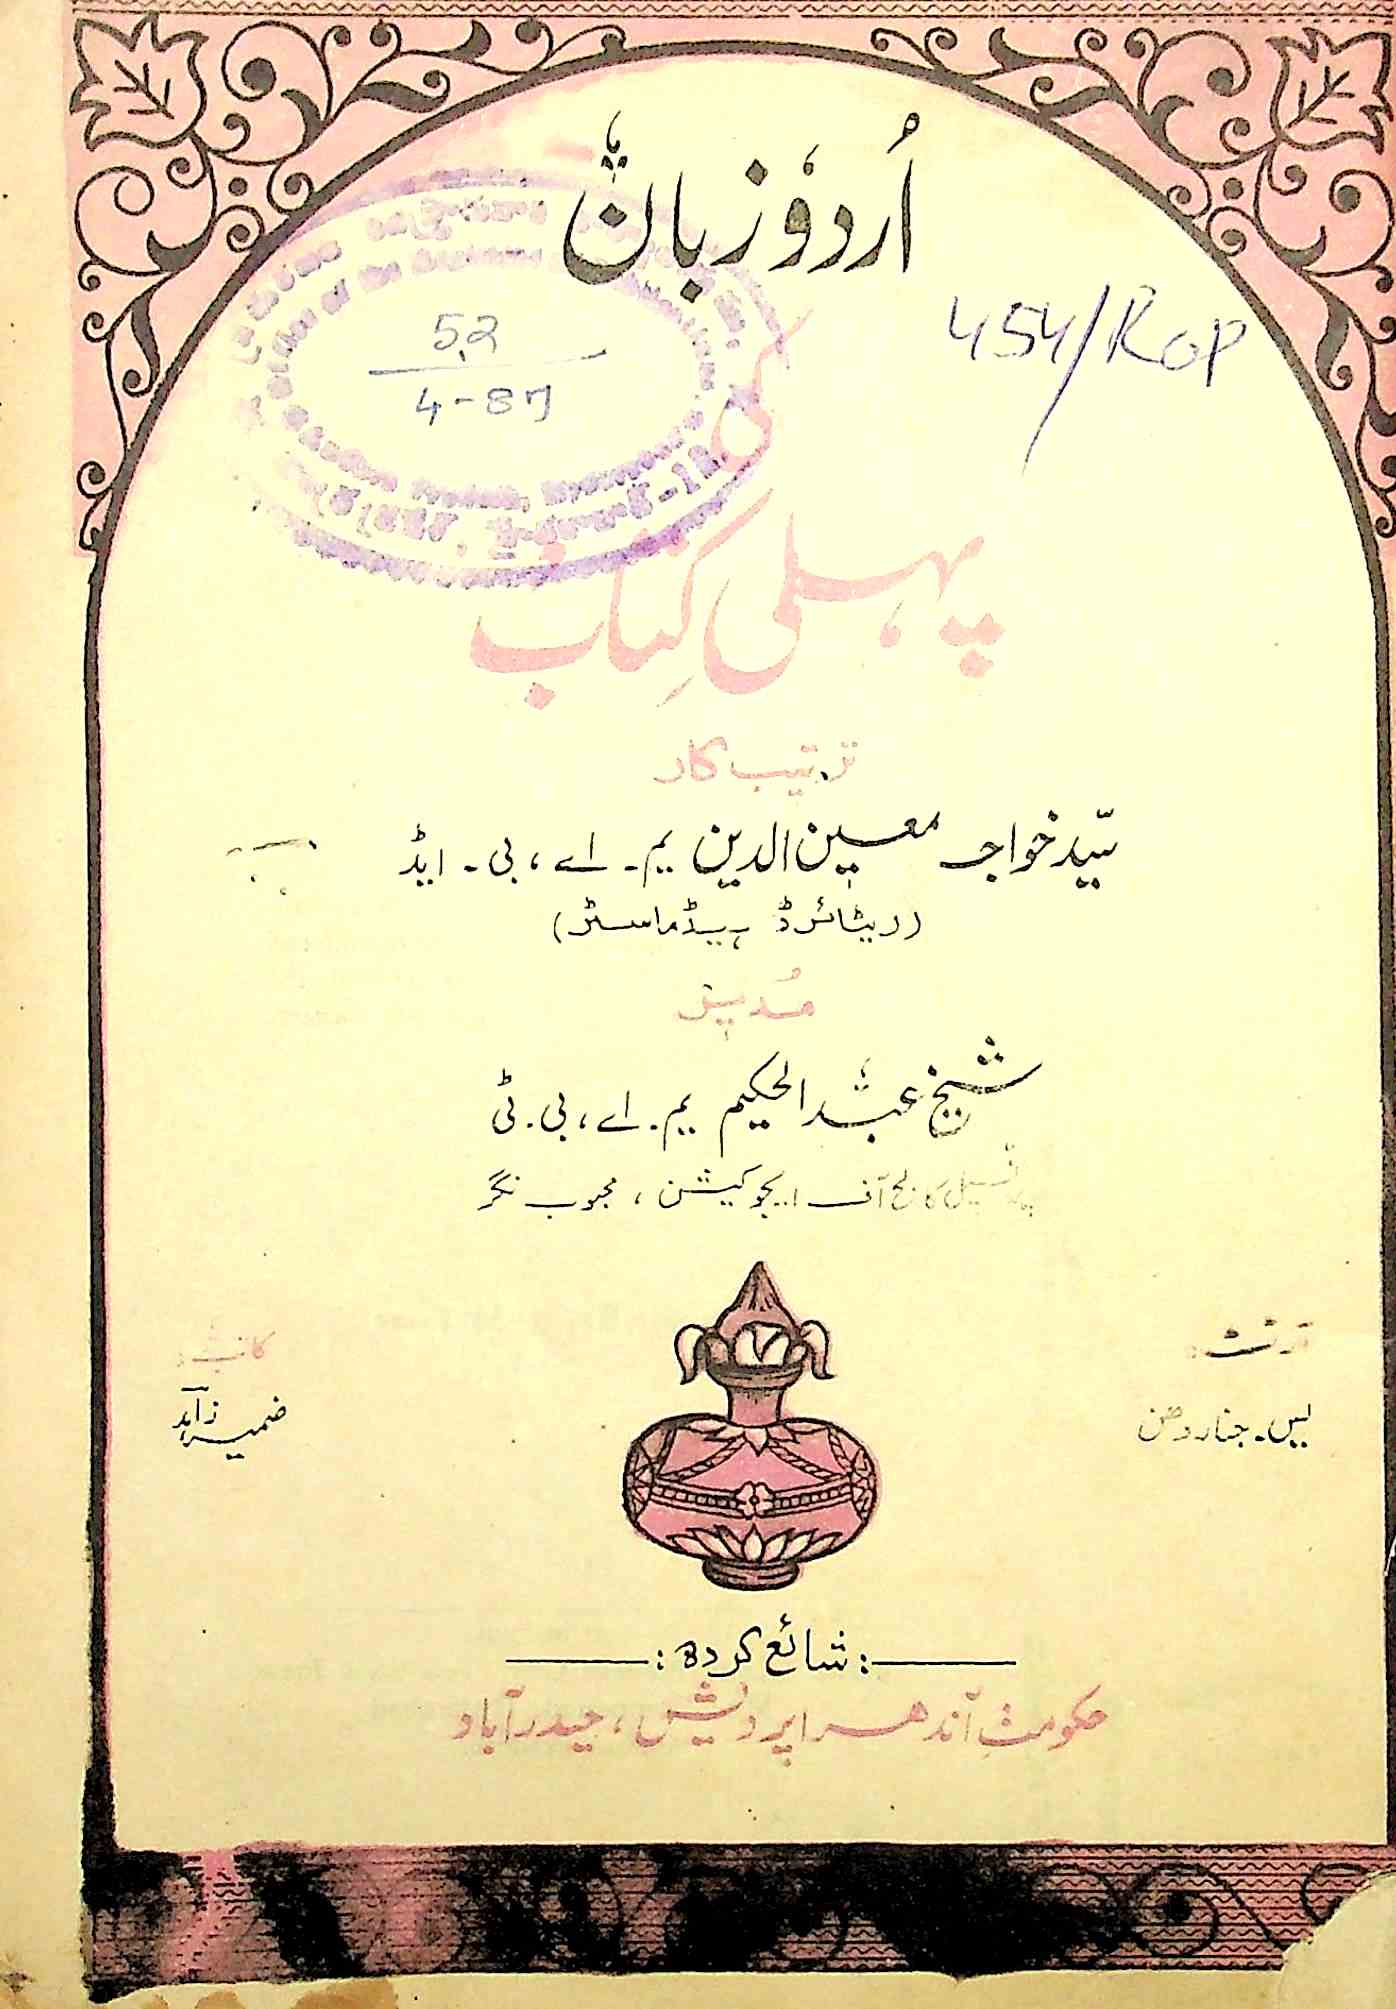 اُردو زبان
کی
پہلی کتاب
52
4-87
454/Rop
ترتیب کار
سیّد خواجہ معین الدین یم۔ اے، بی۔ ایڈ
(ریٹائرڈ ہیڈ ماسٹر)
مُدیر
شیخ عبدالحکیم یم۔ اے، بی۔ ٹی
پرنسپل کالج آف ایجوکیشن، محبوب نگر
یس۔ جناردھن
کاتب:
ضمیر زاہد
:شائع کردہ:
حکومتِ آندھرا پردیش، حیدرآباد